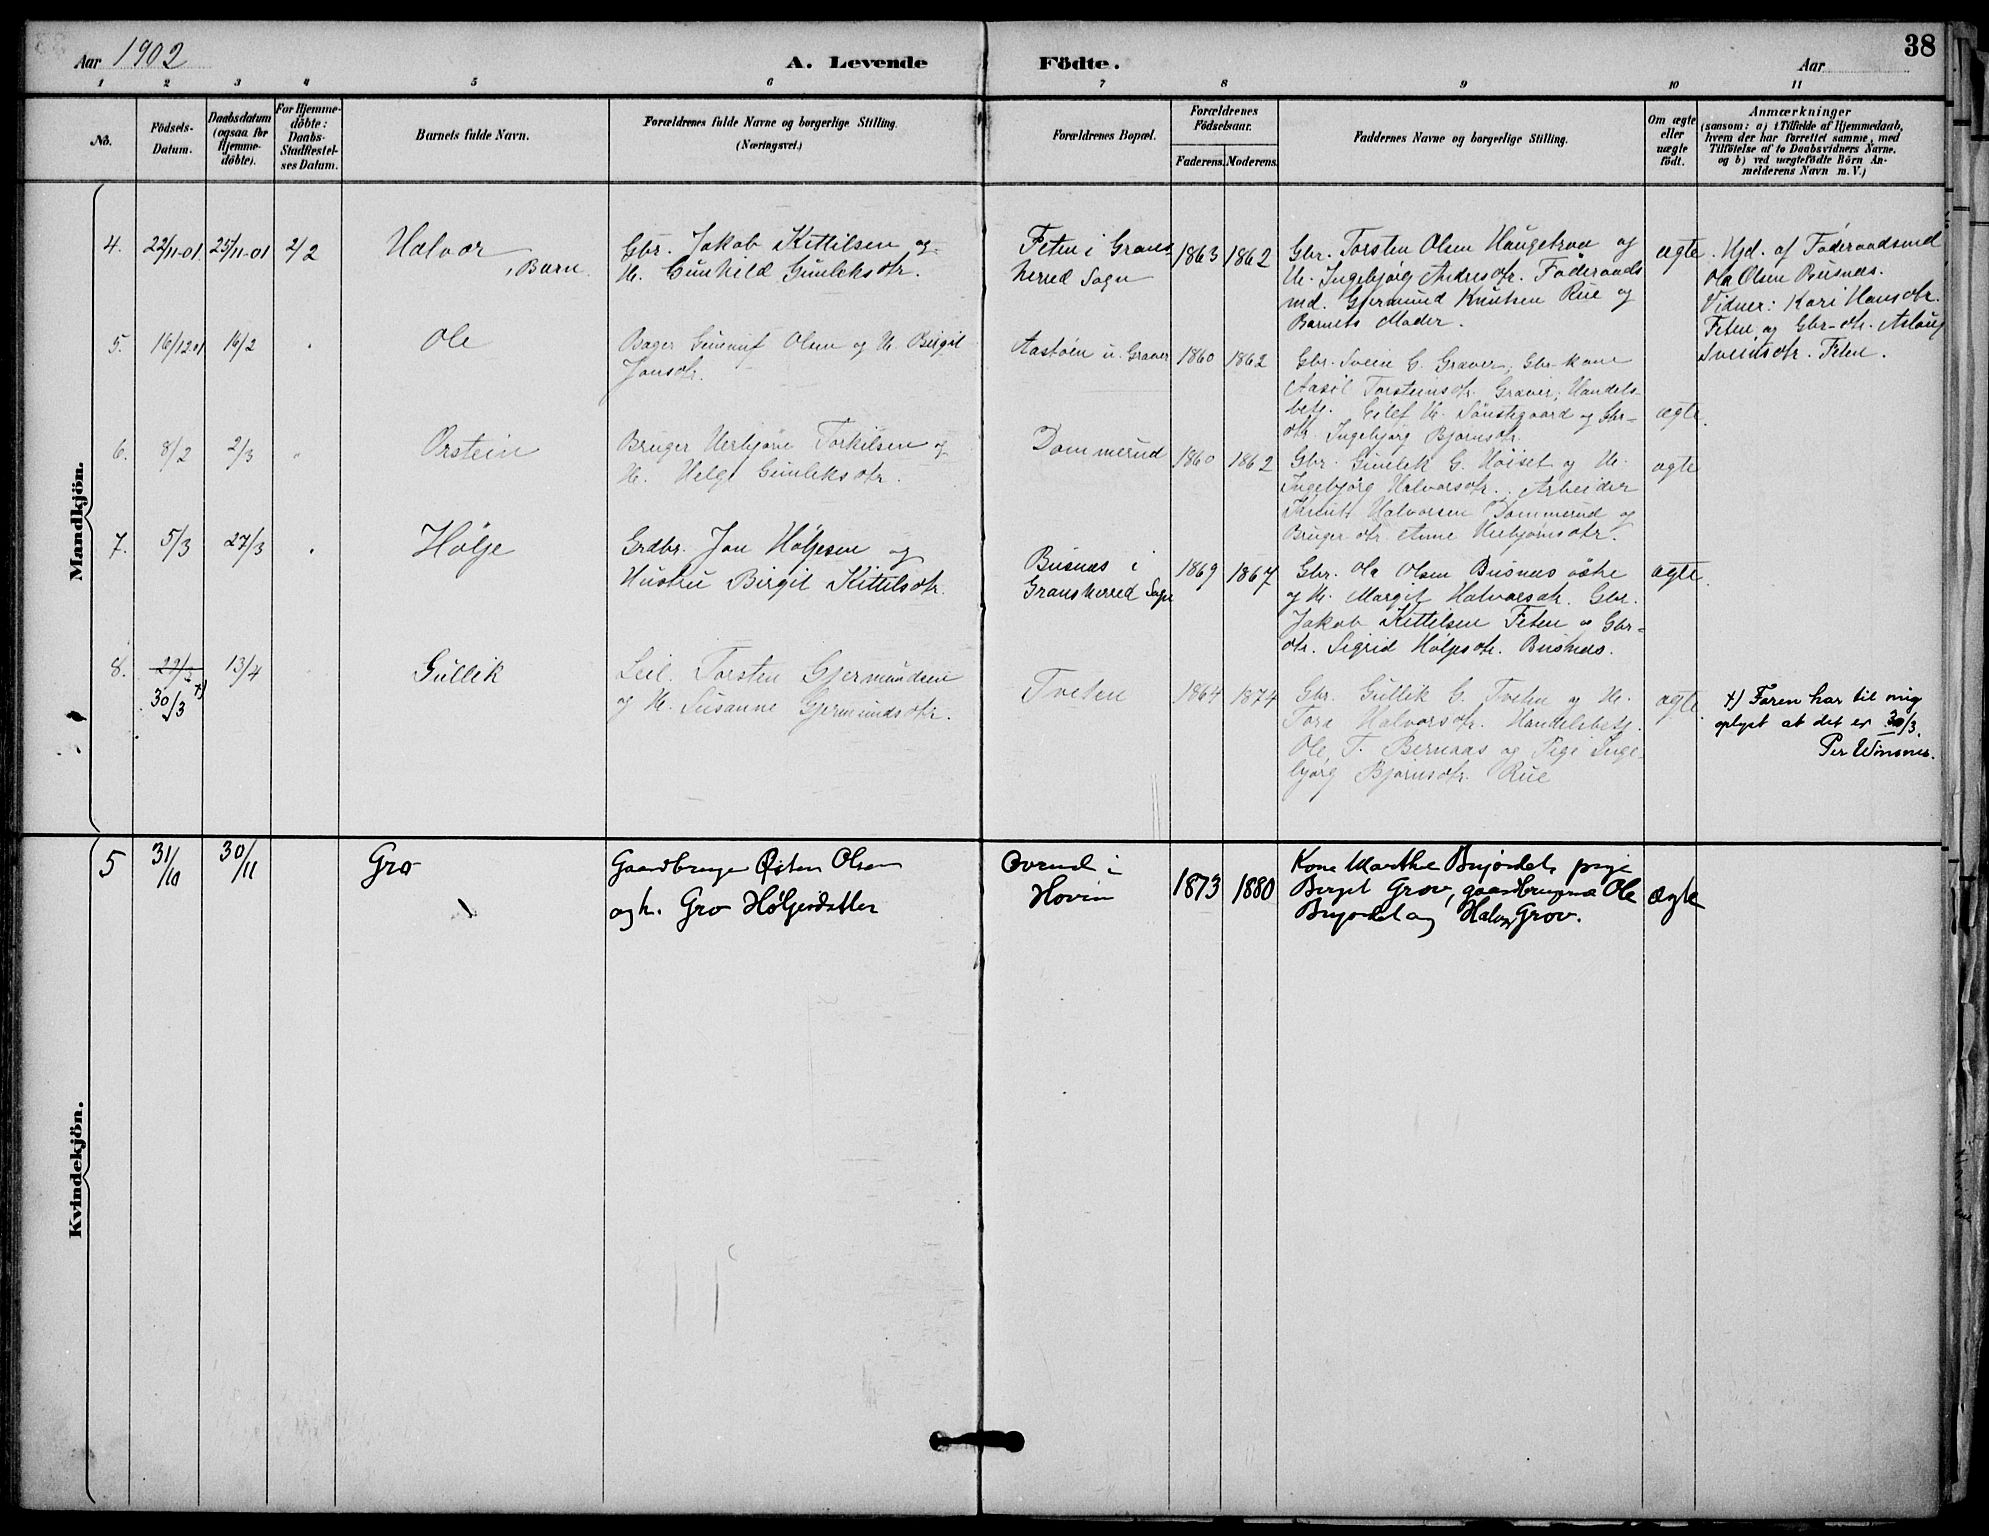 Aar 1902
A. Levende Födte.
Aar
38
1 2 3 4 5 6 7 8 9 10 11
No.
Födsels-
Datum.
Daabsdatum
(ogsaa for
Hjemme-
döbte).
For Hjemme-
döbte:
Daabs-
Stadfæstel-
ses Datum.
Barnets fulde Navn.
Forældrenes fulde Navne og borgerlige Stilling.
(Næringsvei.)
Forældrenes Bopæl.
Forældrenes
Födselsaar.
Faderens. Moderens.
Faddernes Navne og borgerlige Stilling.
Om ægte
eller
uægte
födt.
Anmærkninger
(saasom: a) i Tilfælde af Hjemmedaab,
hvem der har forrettet samme, med
Tilföielse af to Daabsvidners Navne.
og b) ved uægtefödte Börn An-
melderens Navn m. V.)
Mandkjön.
4.
22/11-01
25/11-01
2/2
Halvor
, Barn.
Gbr. Jakob Kittilsen og
H. Gunhild Gunleksdtr.
Feten i Grans-
herred Sogn
1863
1862
Gbr. Torsten Olsen Haugetraa og
H. Ingebjorg Andresdtr. Föderaads
md. Gjermund Knutsen Rue og
Barnets Moder.
ægte
Hjd. af Föderaadsmd
Ola Olsen Busnæs.
Vidner: Kari Hansdtr.
Feten og Gbr-dtr. Aslaug
Sveinsdtr. Feten.
5.
16/12 01
16/2
"
Ole
Bager Gunnuf Olsen og H. Birgit
Jonsdtr.
Aastöen u. Graver
1860
1862
Gbr. Svein G. Graver, Gbr-kone
Aasil Torsteinsdtr. Graver, Handels-
betj. Eilef H. Sönstegaard og Gbr-
dtr. Ingebjörg Bjørnsdtr.
ægte
6.
8/2
2/3
"
Orstein
Bruger Herbjörn Torkilsen og
H. Helgi Gunleksdtr.
Dommerud
1860
1862
Gbr. Gunlek G. Höiset og H.
Ingebjörg Halvorsdtr. Arbeider
Knut Halvorsen Dommerud og
Bruger dtr. Anne Herbjørnsdtr.
ægte
7.
5/3
27/3
"
Hølje
Grdbr. Jon Høljesen og
Hustru Birgit Kittelsdtr.
Busnæs i
Gransherred Sogn
1869
1867
Gbr. Ola Olsen Busnæs östre
og H. Margit Halvorsdtr. Gbr.
Jakob Kittelsen Feten og Gbr-
dtr. Sigrid Høljesdtr. Busnæs.
ægte
8.
30/3 +)
13/4
Gullik
Leil. Torsten Gjermundsen
og H. Susanne Gjermundsdtr.
Tveten
1864
1874
Gbr. Gullik G. Tveten og H.
Tore Halvorsdtr. Handelsbetj.
Ole T. Bernaas og Pige Inge-
bjørg Bjørnsdtr. Rue
ægte
+) Faren har til mig
oplyst at det er 30/3.
Per Winsnes.
Kvindekjön.
5
31/10
30/11
Gro
Gaardbruger Østen Olsen
og h. Gro Høljesdatter
Ovrud i
Hovin
1873
1880
Kone Marthe Busjordet, pige
Birgit Grov, gaardbrugerne Ole
Busjordet og Halvor Grov.
ægte